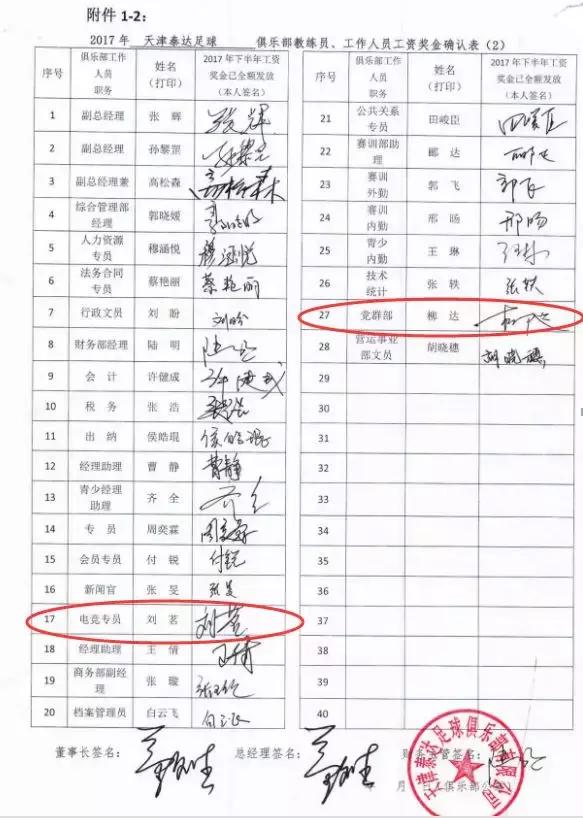 附件 1-2：
2017 年 天津泰达足球 俱乐部教练员、工作人员工资奖金确认表（2）
序号 俱乐部工作人员职务 姓名（打印） 2017 年下半年工资奖金已全额发放（本人签名）
1 副总经理 张 辉 张辉
2 副总经理 孙黎罡
3 副总经理兼 高松森 高松森
4 综合管理部经理 郭晓媛
5 人力资源专员 穆涵悦 穆涵悦
6 法务合同专员 蔡艳丽 蔡艳丽
7 行政文员 刘 盼 刘盼
8 财务部经理 陆 明
9 会 计 许健成
10 税 务 张 浩
11 出 纳 侯皓琨 侯皓琨
12 经理助理 曹 静 曹静
13 青少经理助理 齐 全
14 专 员 周奕霖 周奕霖
15 会员专员 付 锐 付锐
16 新闻官 张 旻 张旻
17 电竞专员 刘 茗 刘茗
18 经理助理 王 倩 王倩
19 商务部副经理 张 璇
20 档案管理员 白云飞 白云飞
序号 俱乐部工作人员职务 姓名（打印） 2017 年下半年工资奖金已全额发放（本人签名）
21 公共关系专员 田峻臣 田峻臣
22 赛训部助理 郦 达
23 赛训外勤 郭 飞 郭飞
24 赛训内勤 邢 旸 邢旸
25 青少内勤 王 琳 王琳
26 技术统计 张 轶 张轶
27 党群部 柳 达
28 营运事业部文员 胡晓穗 胡晓穗
29
30
31
32
33
34
35
36
37
38
39
40
董事长签名： 总经理签名： 财务主管签名：
月 日（俱乐部公章）
天津泰达足球俱乐部有限公司